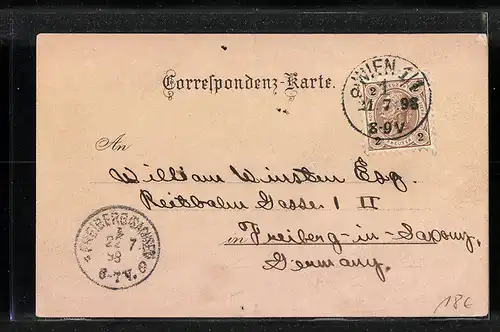 Correspondenz-Karte.
WIEN 1/1
1
21 7 98
8-9V
2 2
2 2
An
William Winsten Esq.
Reitbahn Gasse 1 II
in Freiberg-in-Saxony,
Germany.
FREIBERG (SACHSEN)
22 7
98
6-7V.
18€